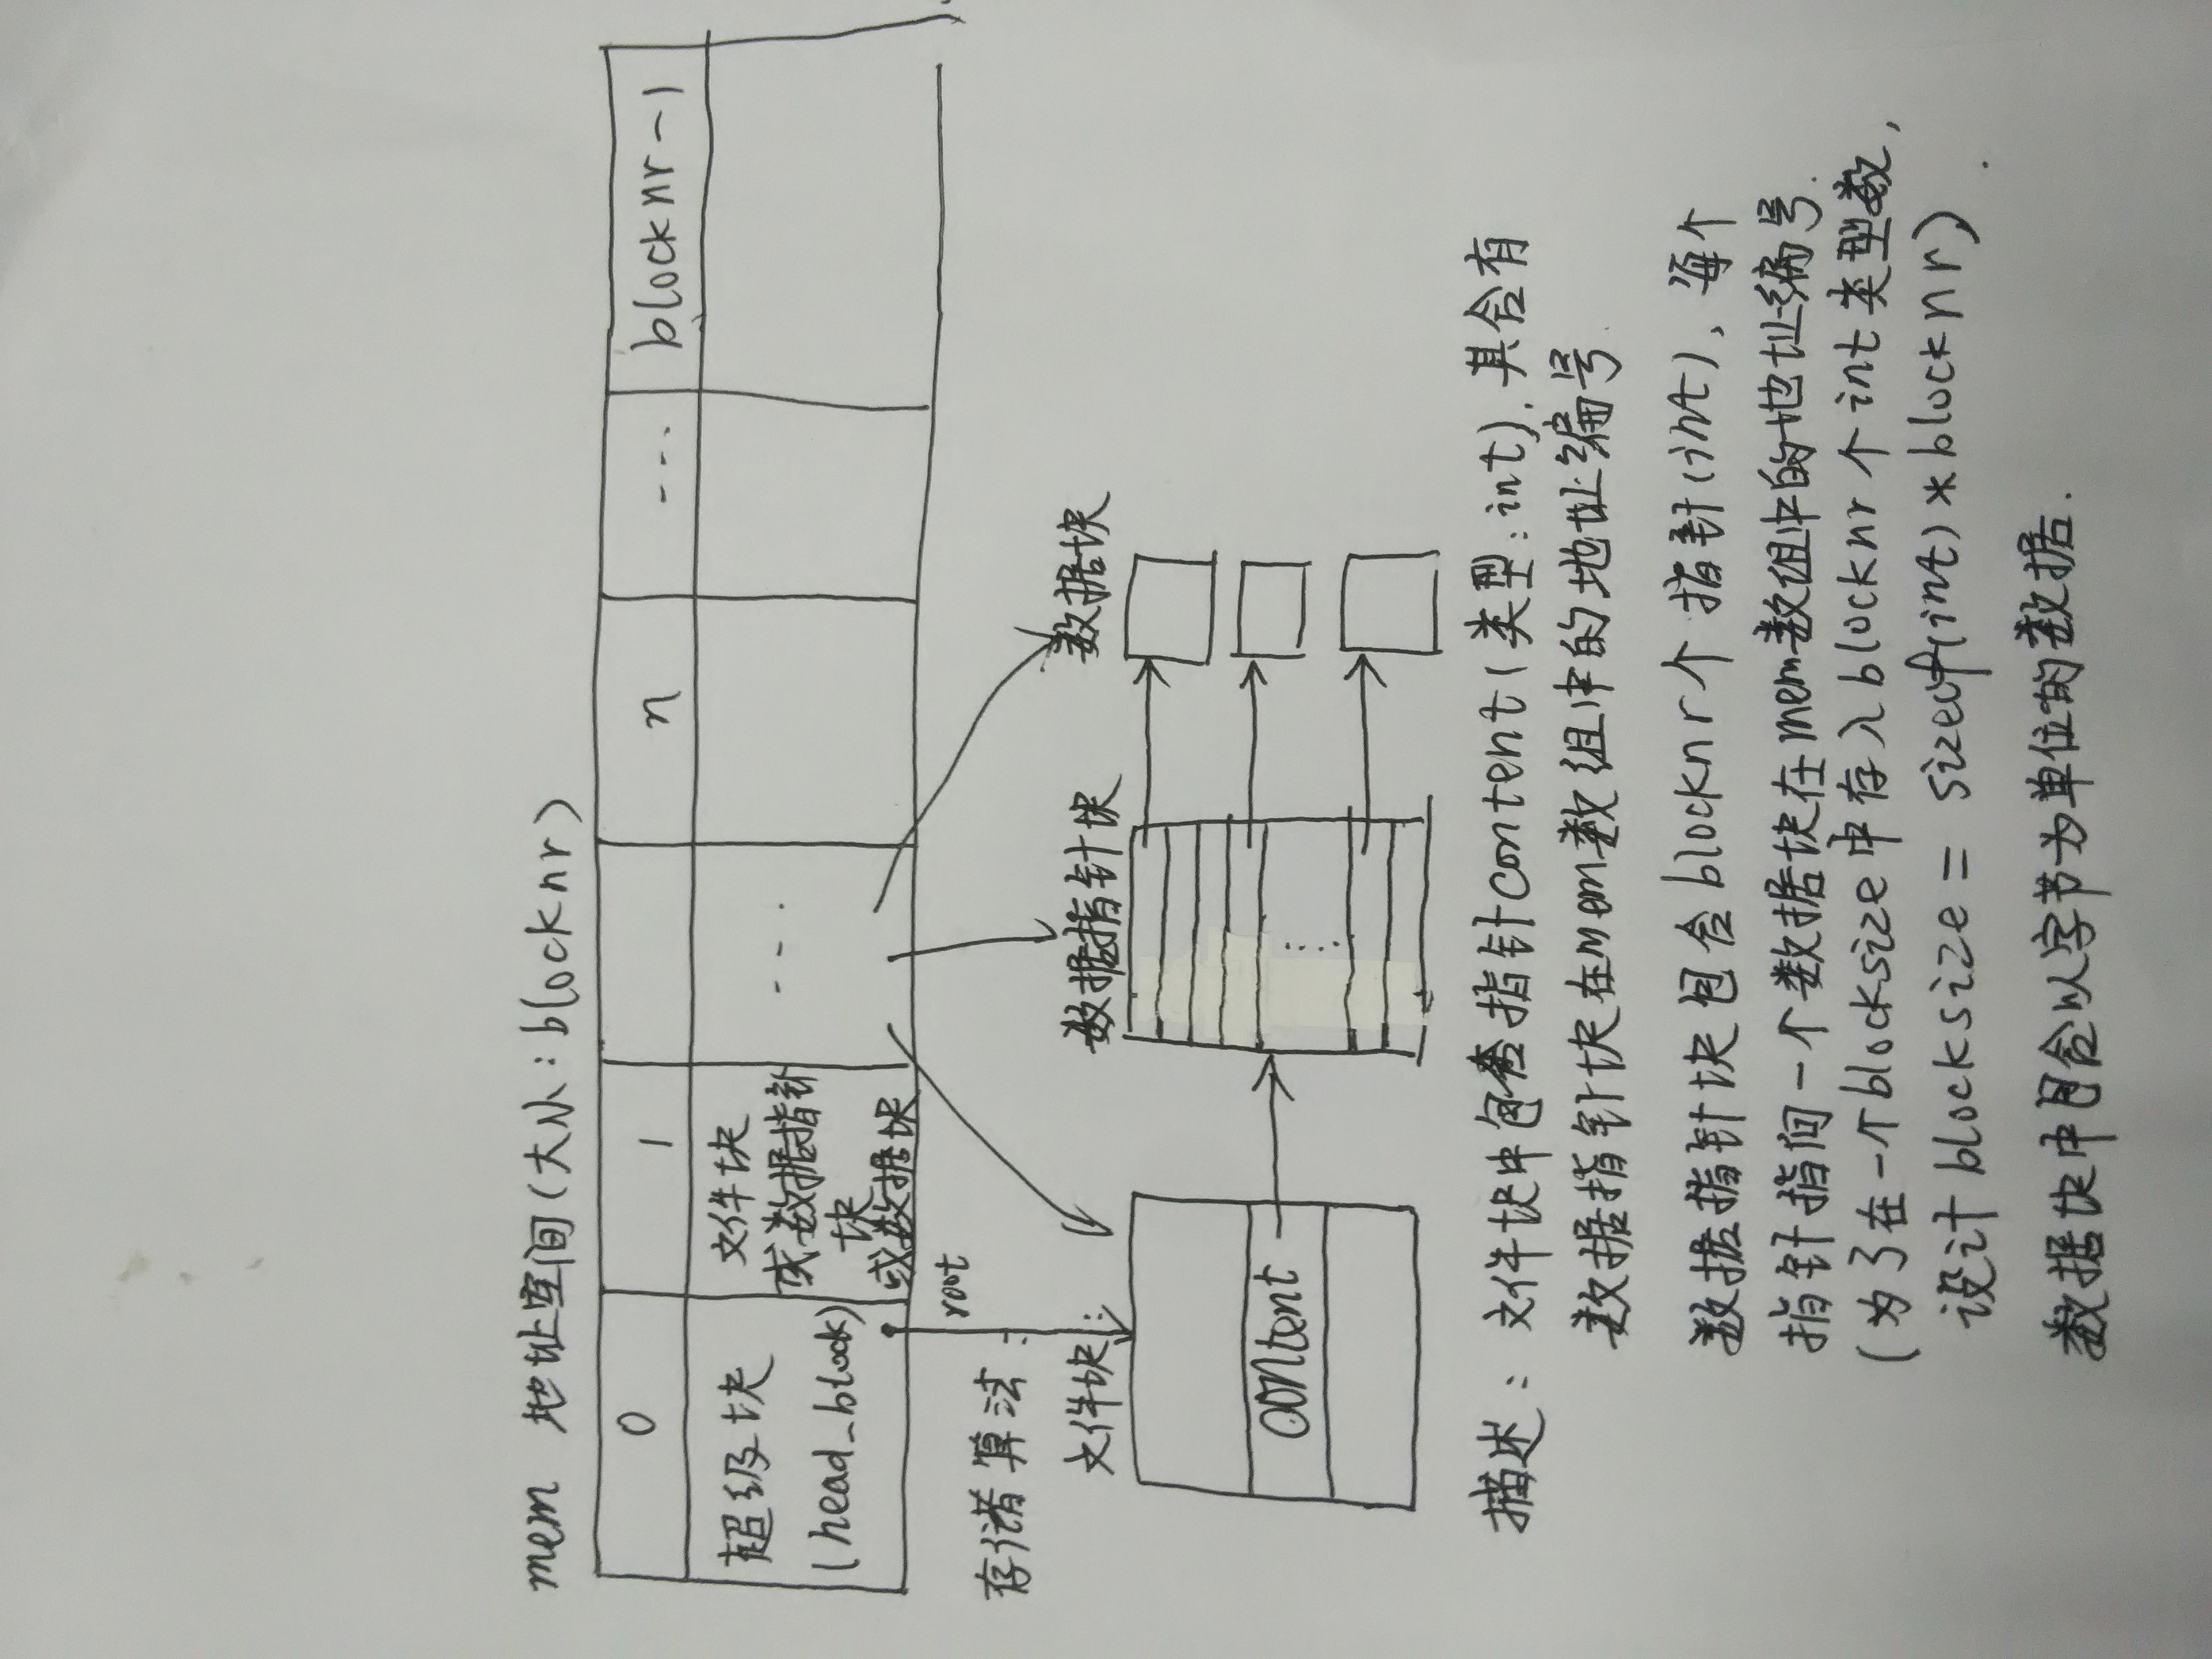 mem 地址空间(大小:blocknr)
0 1 n ... blocknr-1
超级块
(head_block)
文件块
或数据指针
块
或数据块
...
root
存诸算法:
文件块:
数据指针块
数据块
content
描述: 文件块中包含指针content(类型:int).其含有
数据指针块在mem数组中的地址编号.
数据指针块包含blocknr个指针(int),每个
指针指向一个数据块在mem数组中的地址编号.
(为了在一个blocksize中存入blocknr个int类型数,
设计blocksize = sizeof(int)*blocknr).
数据块中包含以字节为单位的数据.